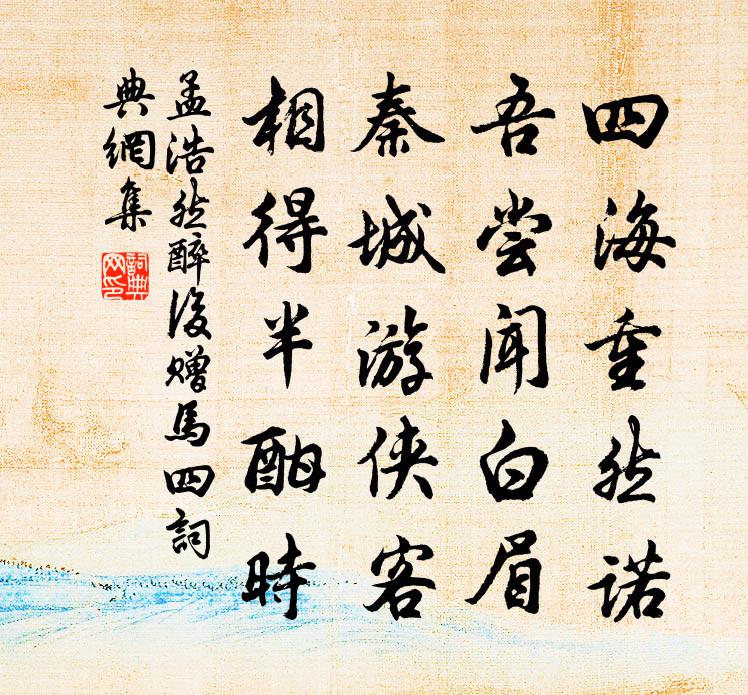 四海重然诺
吾尝闻白眉
秦城游侠客
相得半酣時
孟浩然醉後赠馬四詞
典網集
詞典
网印